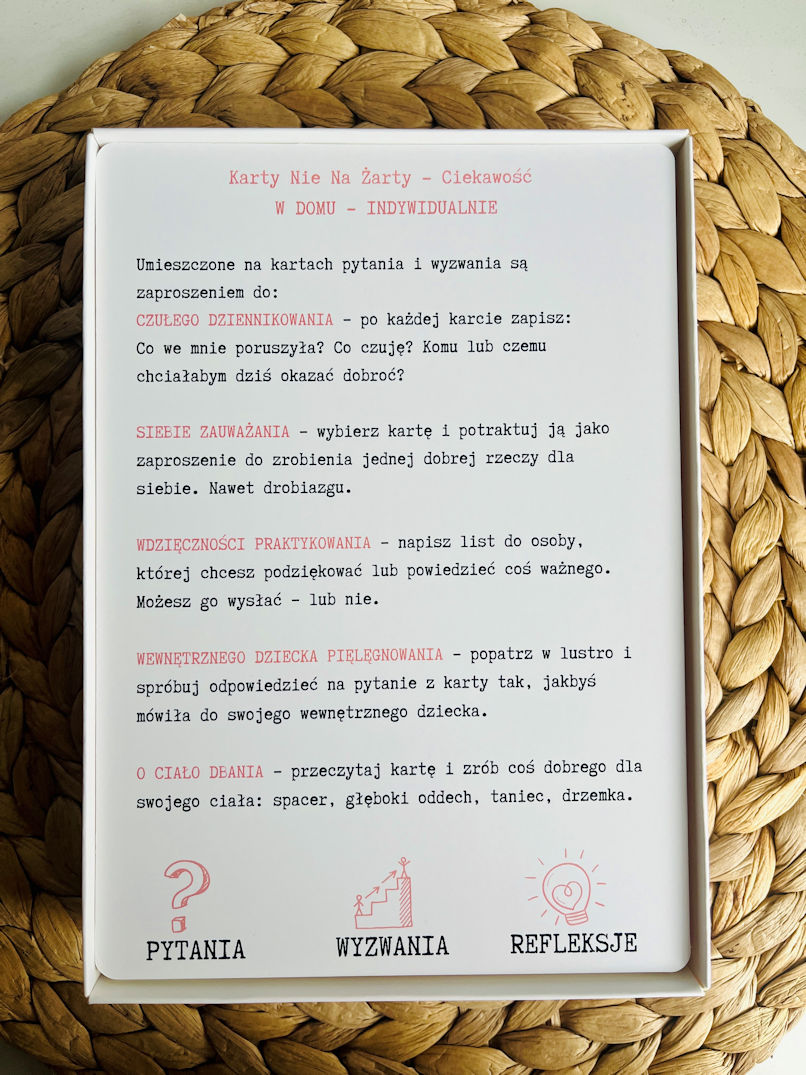 Karty Nie Na Żarty - Ciekawość
W DOMU - INDYWIDUALNIE
Umieszczone na kartach pytania i wyzwania są
zaproszeniem do:
CZUŁEGO DZIENNIKOWANIA - po każdej karcie zapisz:
Co we mnie poruszyła? Co czuję? Komu lub czemu
chciałabym dziś okazać dobroć?
SIEBIE ZAUWAŻANIA - wybierz kartę i potraktuj ją jako
zaproszenie do zrobienia jednej dobrej rzeczy dla
siebie. Nawet drobiazgu.
WDZIĘCZNOŚCI PRAKTYKOWANIA - napisz list do osoby,
której chcesz podziękować lub powiedzieć coś ważnego.
Możesz go wysłać - lub nie.
WEWNĘTRZNEGO DZIECKA PIELĘGNOWANIA - popatrz w lustro i
spróbuj odpowiedzieć na pytanie z karty tak, jakbyś
mówiła do swojego wewnętrznego dziecka.
O CIAŁO DBANIA - przeczytaj kartę i zrób coś dobrego dla
swojego ciała: spacer, głęboki oddech, taniec, drzemka.
PYTANIA WYZWANIA REFLEKSJE